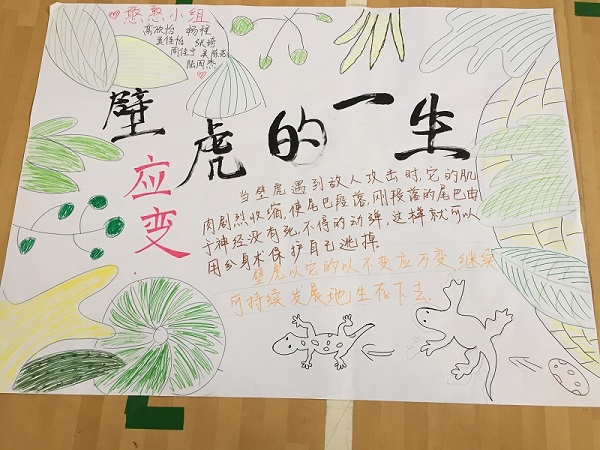 憨憨小组
高欣怡 杨程
吴佳怡 张琦
周佳宁 吴陈尧
陆周杰
壁虎的一生
应变
当壁虎遇到敌人攻击时,它的肌
肉剧烈收缩,使尾巴段落,刚段落的尾巴由
于神经没有死,不停的动弹,这样就可以
用分身术保护自己逃掉
壁虎以它的以不变应万变,继续
可持续发展地生存下去.